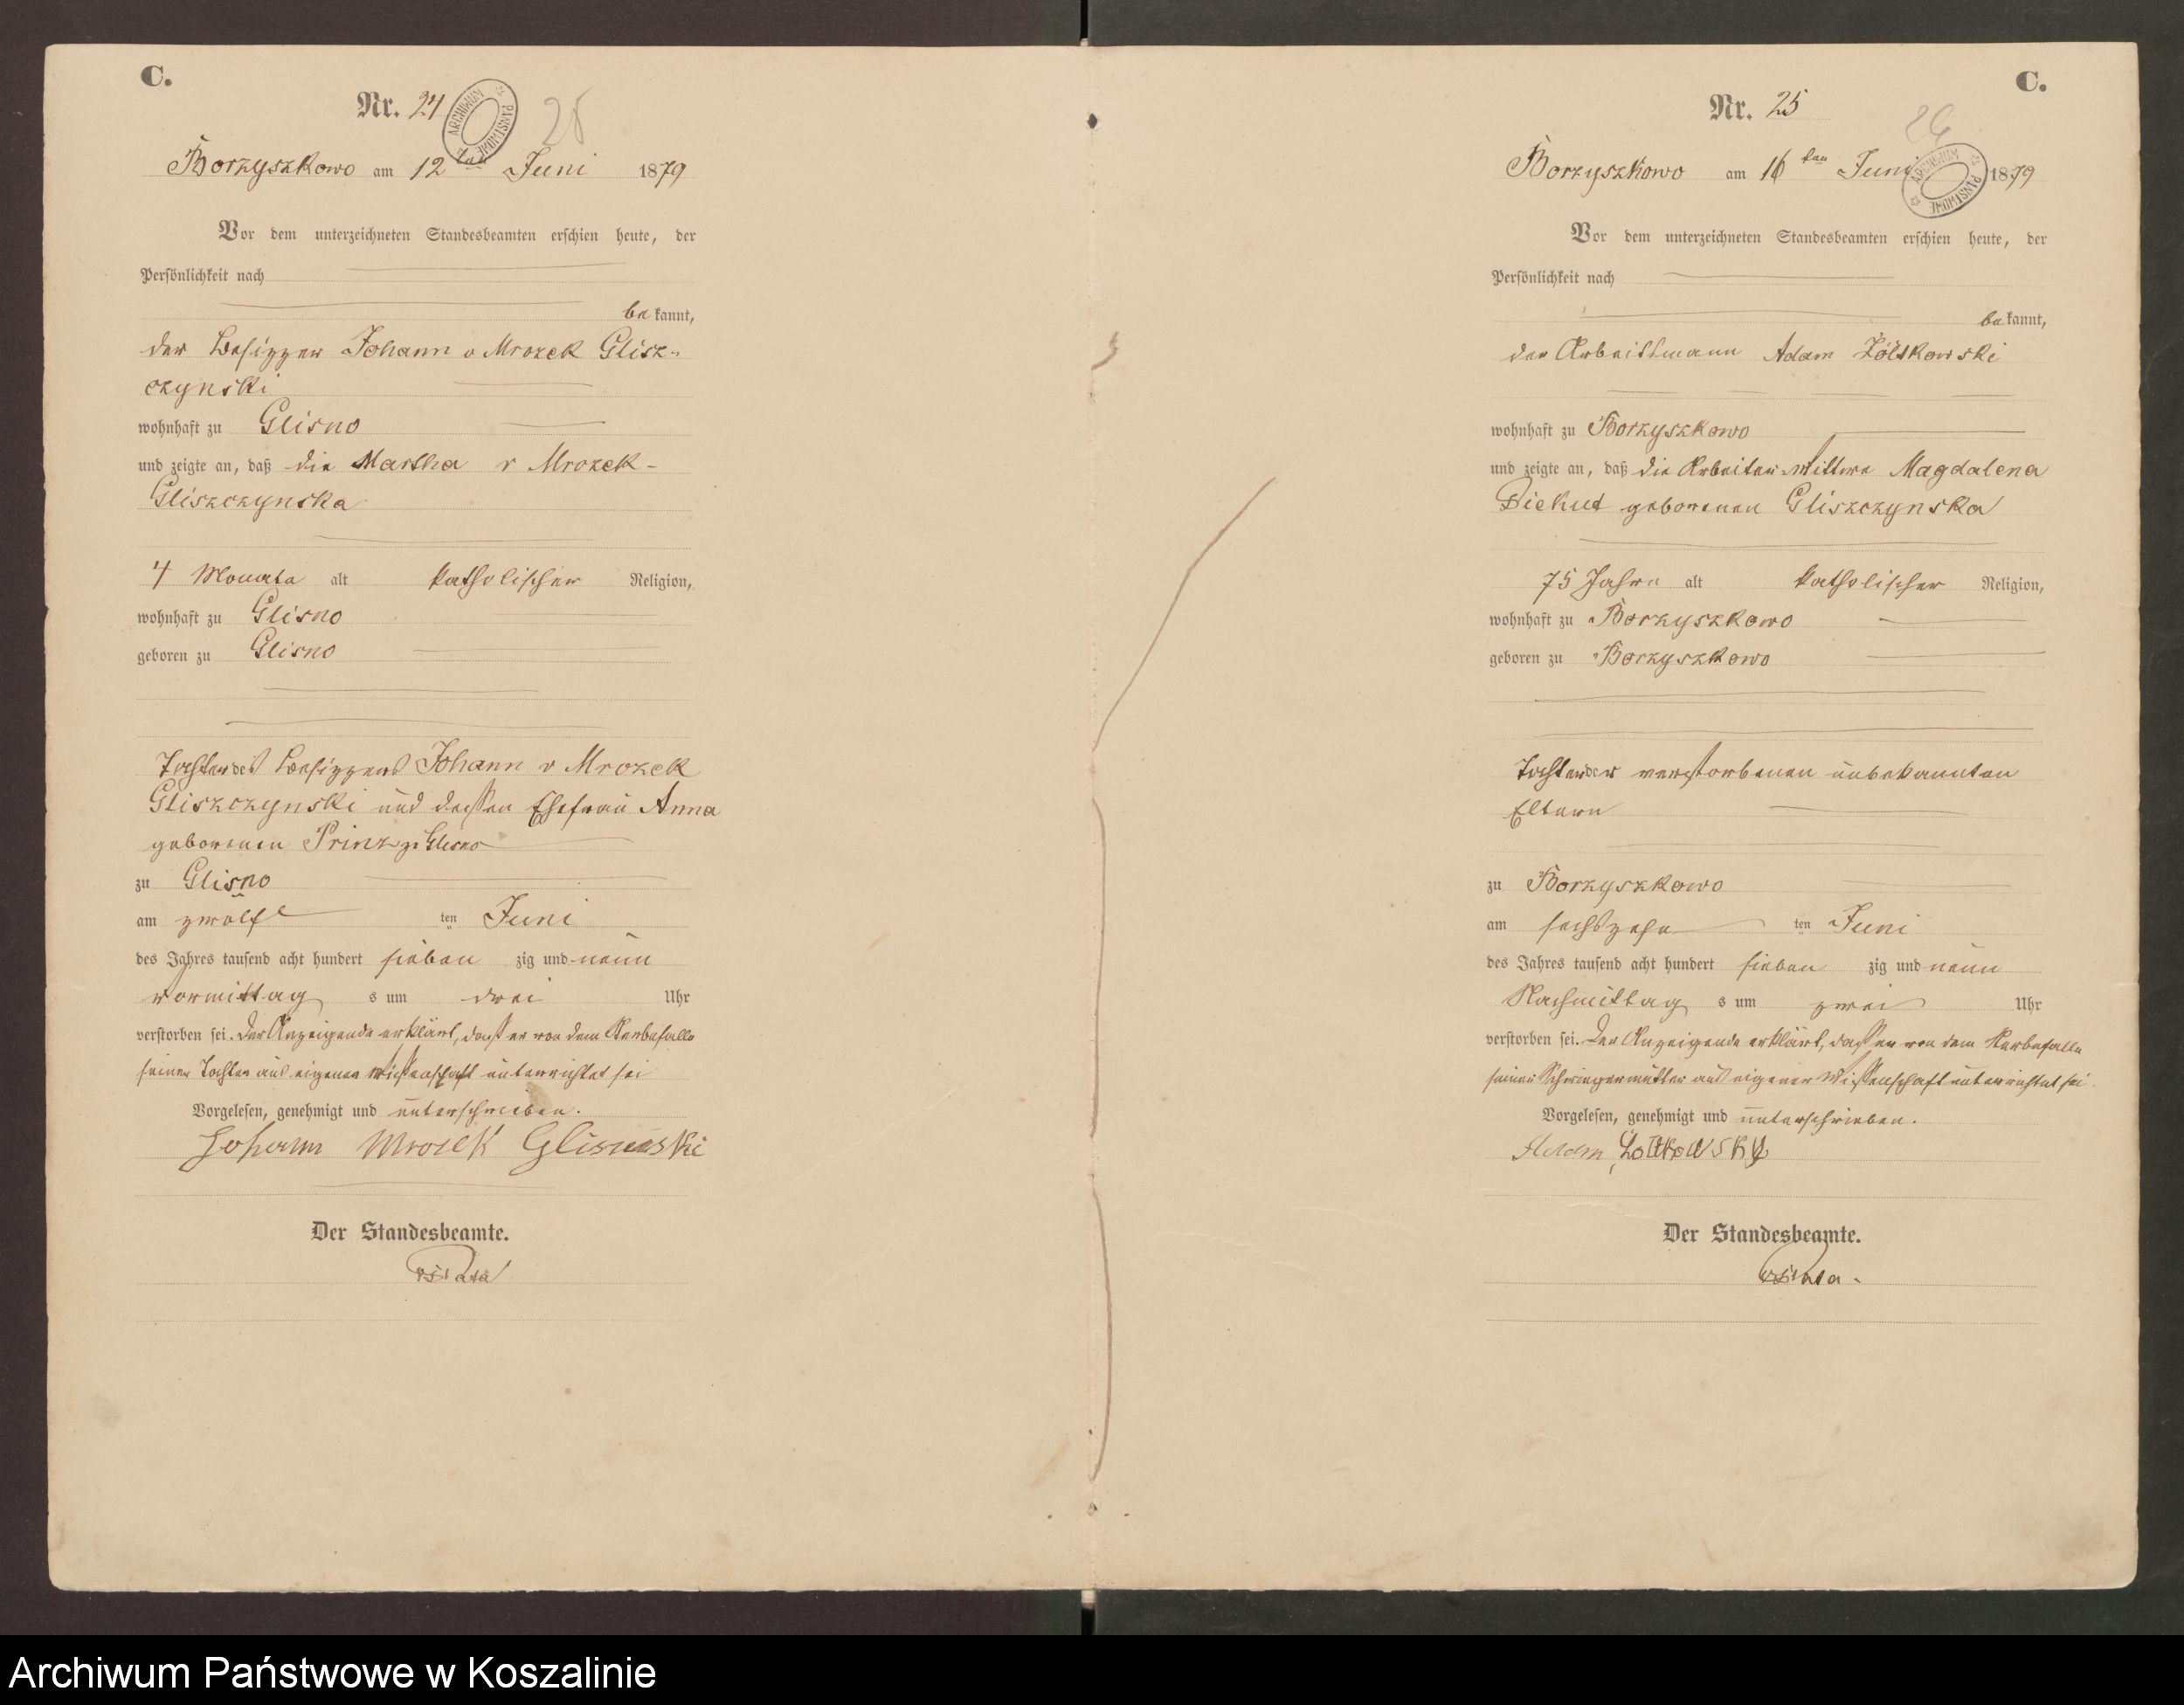 C.
Nr. 24
28
Borzyszkowo am 12 ten Juni 1879
Vor dem unterzeichneten Standesbeamten erschien heute, der
Persönlichkeit nach
bekannt,
der Besitzer Johann v Mrozek Glisz-
czynski
wohnhaft zu Glisno
und zeigte an, daß die Martha v Mrozek-
Gliszczynska
4 Monate alt katholischer Religion,
wohnhaft zu Glisno
geboren zu Glisno
Tochter des Besitzers Johann v Mrozek
Gliszczynski und dessen Ehefrau Anna
geborenen Prinz zu Glisno
zu Glisno
am zwölf ten Juni
des Jahres tausend acht hundert sieben zig und neun
vormittag s um drei Uhr
verstorben sei. Der Anzeigende erklärt, dass er von dem Sterbefalle
seiner Tochter aus eigener Wissenschaft unterrichtet sei
Vorgelesen, genehmigt und unterschrieben.
Johann Mrozek Glisinski
Der Standesbeamte.
ARCHIWUM PAŃSTWOWE
C.
Nr. 25
Borzyszkowo am 16 ten Juni 1879
Vor dem unterzeichneten Standesbeamten erschien heute, der
Persönlichkeit nach
bekannt,
der Arbeitsmann Adam Żółtkowski
wohnhaft zu Borzyszkowo
und zeigte an, daß die Arbeiter-Wittwe Magdalena
Piekut geborenen Gliszczynska
75 Jahre alt katholischer Religion,
wohnhaft zu Borzyszkowo
geboren zu Borzyszkowo
Tochter der verstorbenen unbekannten
Eltern
zu Borzyszkowo
am sechszehn ten Juni
des Jahres tausend acht hundert sieben zig und neun
Nachmittag s um zwei Uhr
verstorben sei. Der Anzeigende erklärt, dass er von dem Sterbefalle
seiner Schwiegermutter aus eigener Wissenschaft unterrichtet sei.
Vorgelesen, genehmigt und unterschrieben.
Adam Żołtkowsky
Der Standesbeamte.
ARCHIWUM PAŃSTWOWE
Archiwum Państwowe w Koszalinie